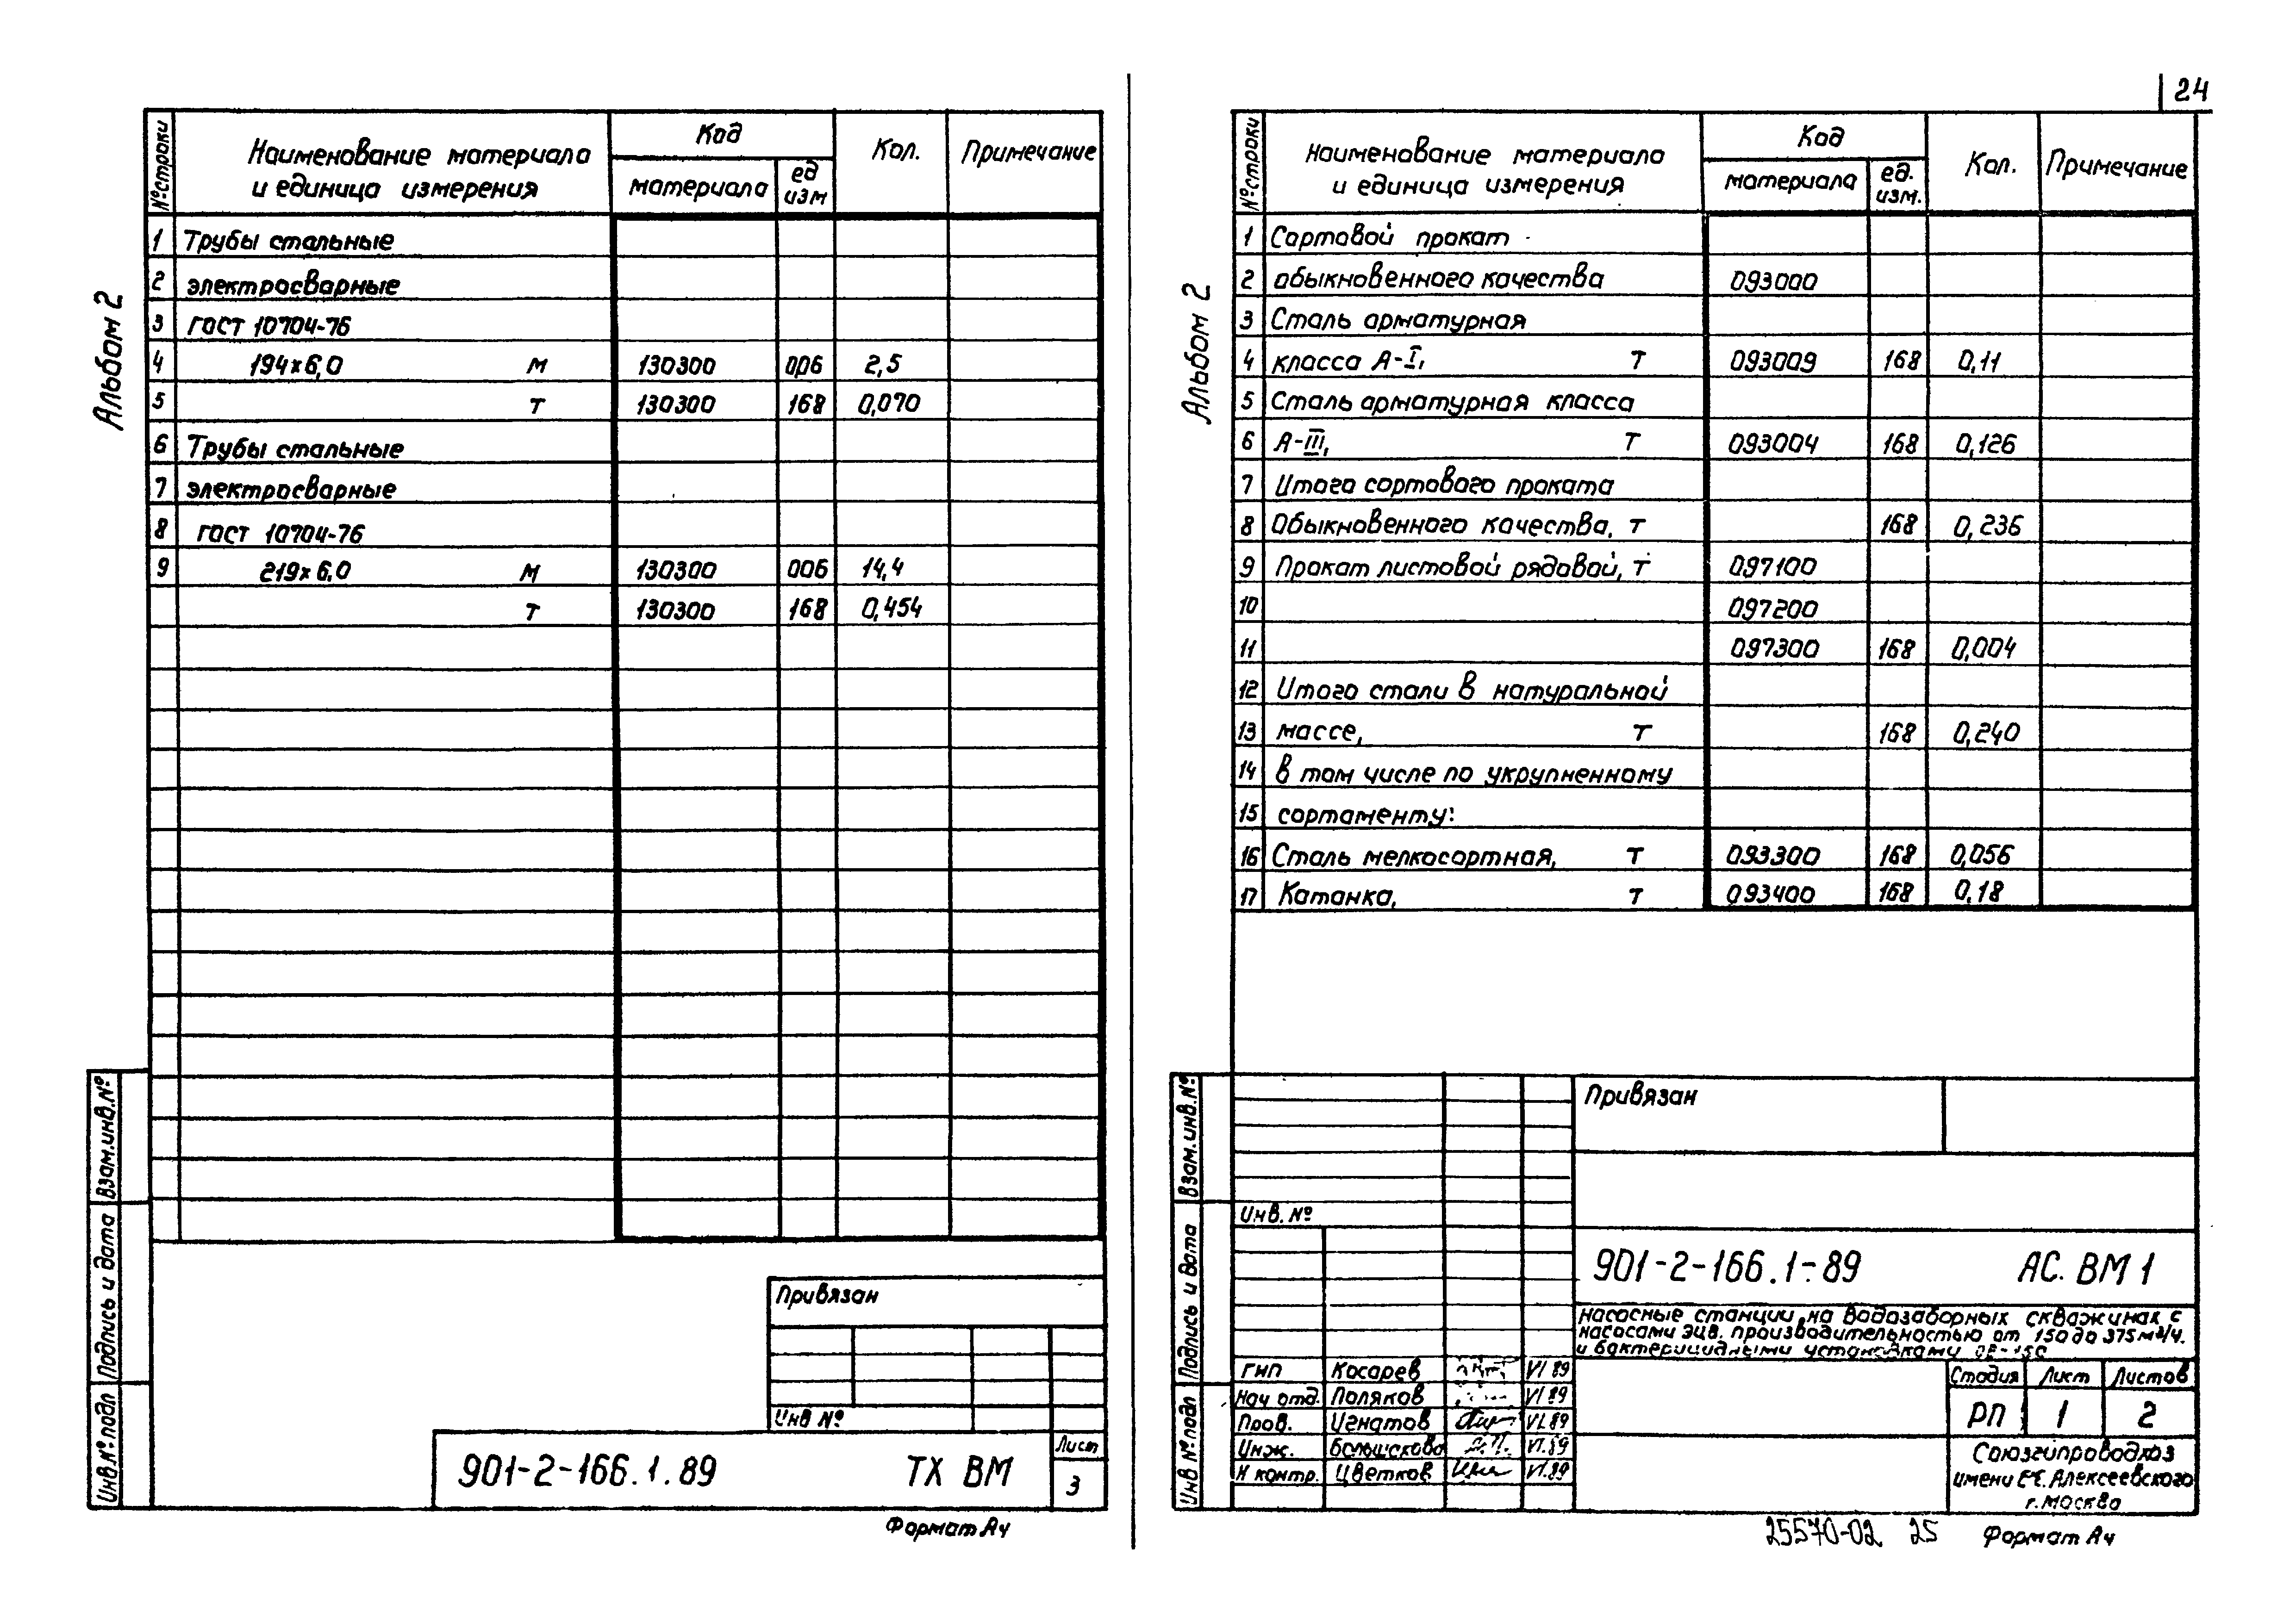 24
Альбом 2
№ строки | Наименование материала и единица измерения | Код материала | Код ед изм | Кол. | Примечание
1 Трубы стальные
2 электросварные
3 ГОСТ 10704-76
4 194х6,0 м 130300 006 2,5
5 т 130300 168 0,070
6 Трубы стальные
7 электросварные
8 ГОСТ 10704-76
9 219х6,0 м 130300 006 14,4
т 130300 168 0,454
Взам.инв.№
Подпись и дата
Инв.№ подл
Привязан
Инв №
901-2-166.1.89 ТХ ВМ
Лист
3
Формат А4
Альбом 2
№ строки | Наименование материала и единица измерения | Код материала | Код ед. изм. | Кол. | Примечание
1 Сортовой прокат
2 обыкновенного качества 093000
3 Сталь арматурная
4 класса А-I, т 093009 168 0,11
5 Сталь арматурная класса
6 А-III, т 093004 168 0,126
7 Итого сортового проката
8 Обыкновенного качества, т 168 0,236
9 Прокат листовой рядовой, т 097100
10 097200
11 097300 168 0,004
12 Итого стали в натуральной
13 массе, т 168 0,240
14 В том числе по укрупненному
15 сортаменту:
16 Сталь мелкосортная, т 093300 168 0,056
17 Катанка, т 093400 168 0,18
Взам.инв.№
Подпись и дата
Инв № подл
Привязан
Инв. №
901-2-166.1-89 АС. ВМ 1
Насосные станции на водозаборных скважинах с
насосами ЭЦВ. производительностью от 150 до 375 м3/ч.
и бактерицидными установками
ГИП Косарев VI 89
Нач отд. Поляков VI 89
Пров. Игнатов VI.89
Инж. Большекова VI.89
Н контр. Цветков VI.89
Стадия Лист Листов
РП 1 2
Союзгипроводхоз
имени Е.Е. Алексеевского
г. Москва
25570-02 25
Формат А4